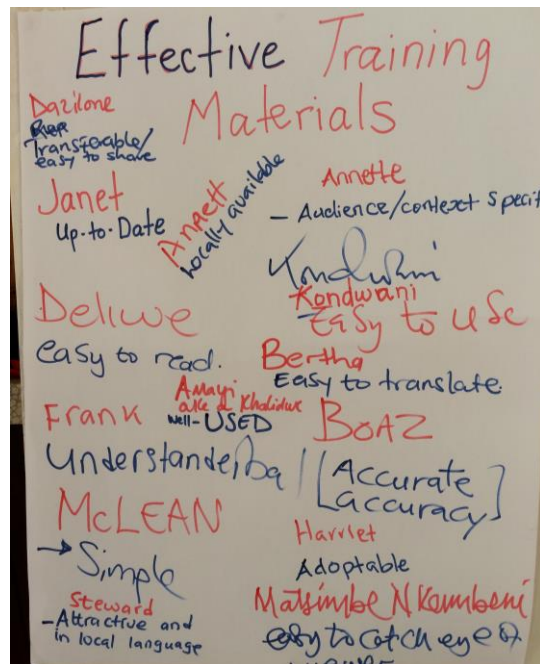 Effective Training
Materials
Dazilone
Transferable/
easy to share
Janet
Up-to-Date
Annett
Locally available
Annette
- Audience/context specif
Kondwani
Kondwani
Easy to use
Deliwe
easy to read.
Bertha
Easy to translate
Amayi
a Khalidwe
Well-USED
Frank
BOAZ
[Accurate
accuracy]
McLEAN
→ Simple
Harriet
Adoptable
Steward
- Attractive and
in local language
Matsimbe NKambeni
easy to catch eye of